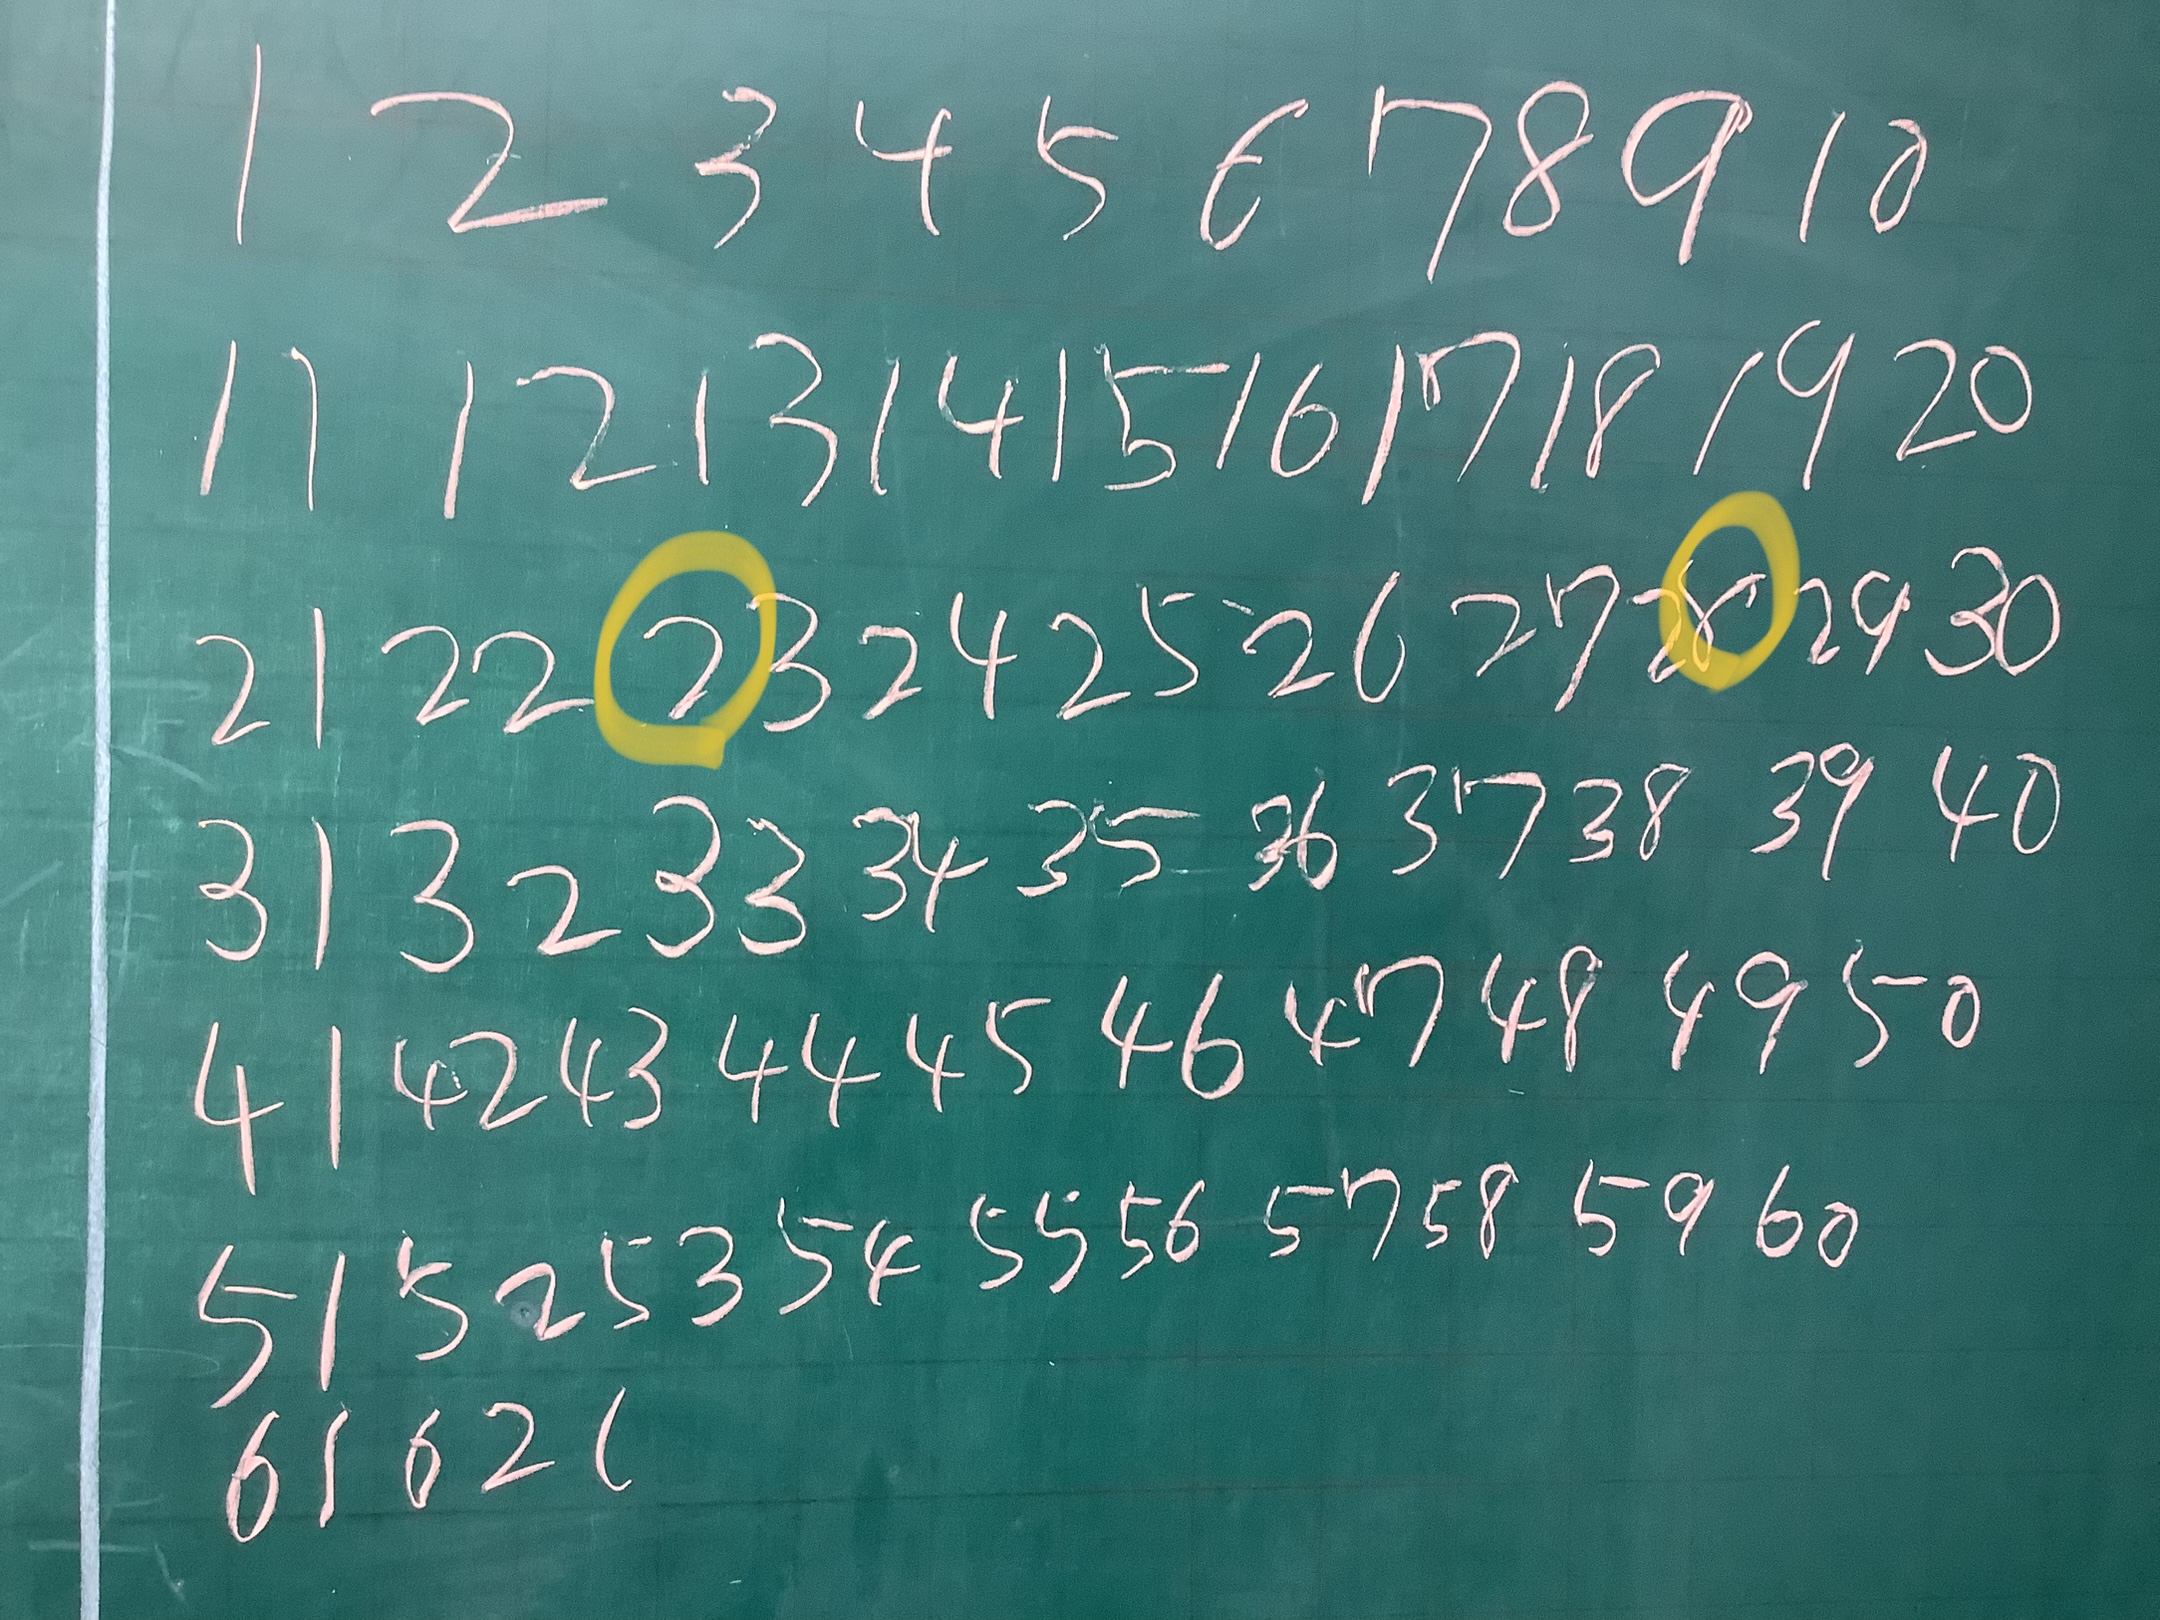 1 2 3 4 5 6 7 8 9 10
11 12 13 14 15 16 17 18 19 20
21 22 23 24 25 26 27 28 29 30
31 32 33 34 35 36 37 38 39 40
41 42 43 44 45 46 47 48 49 50
51 52 53 54 55 56 57 58 59 60
61 62 (